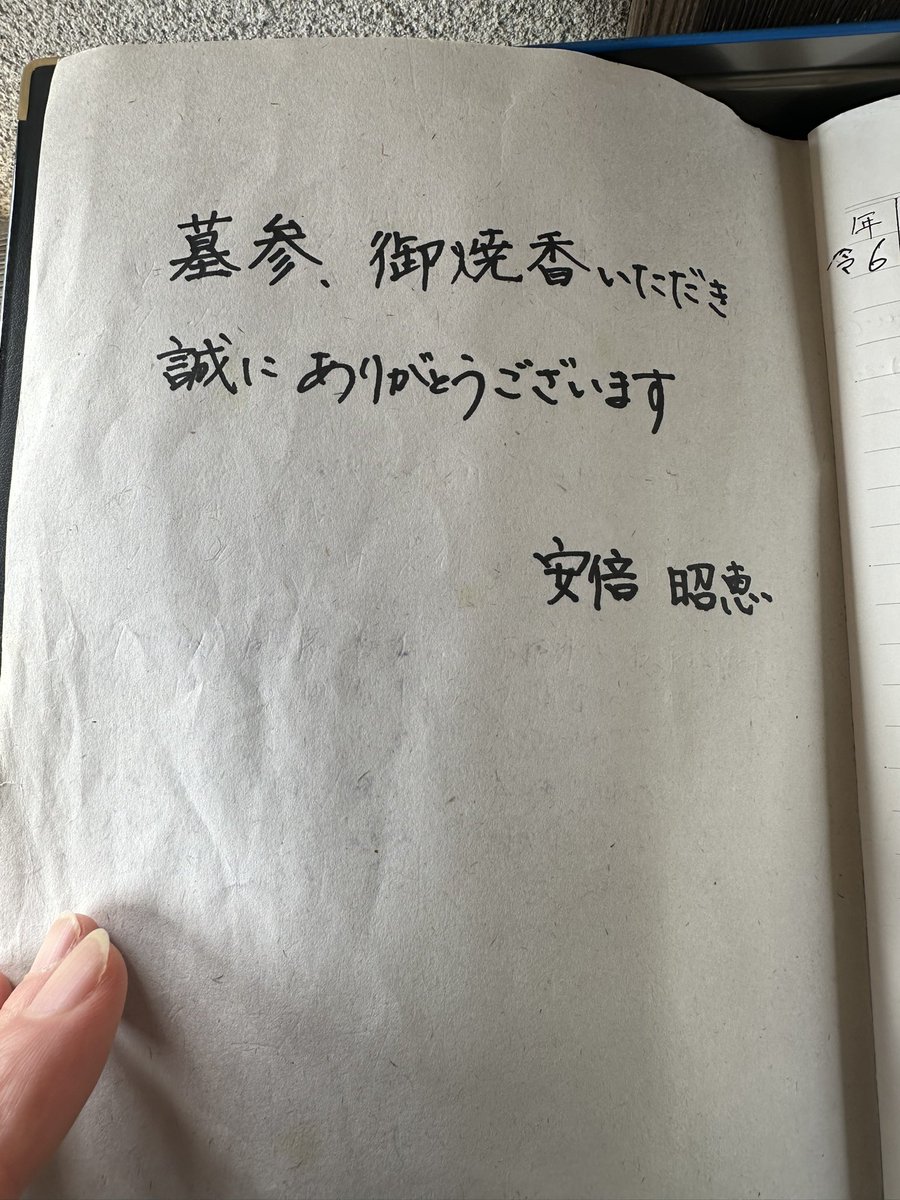 墓参、御焼香いただき
誠にありがとうございます
安倍 昭恵
年
令6